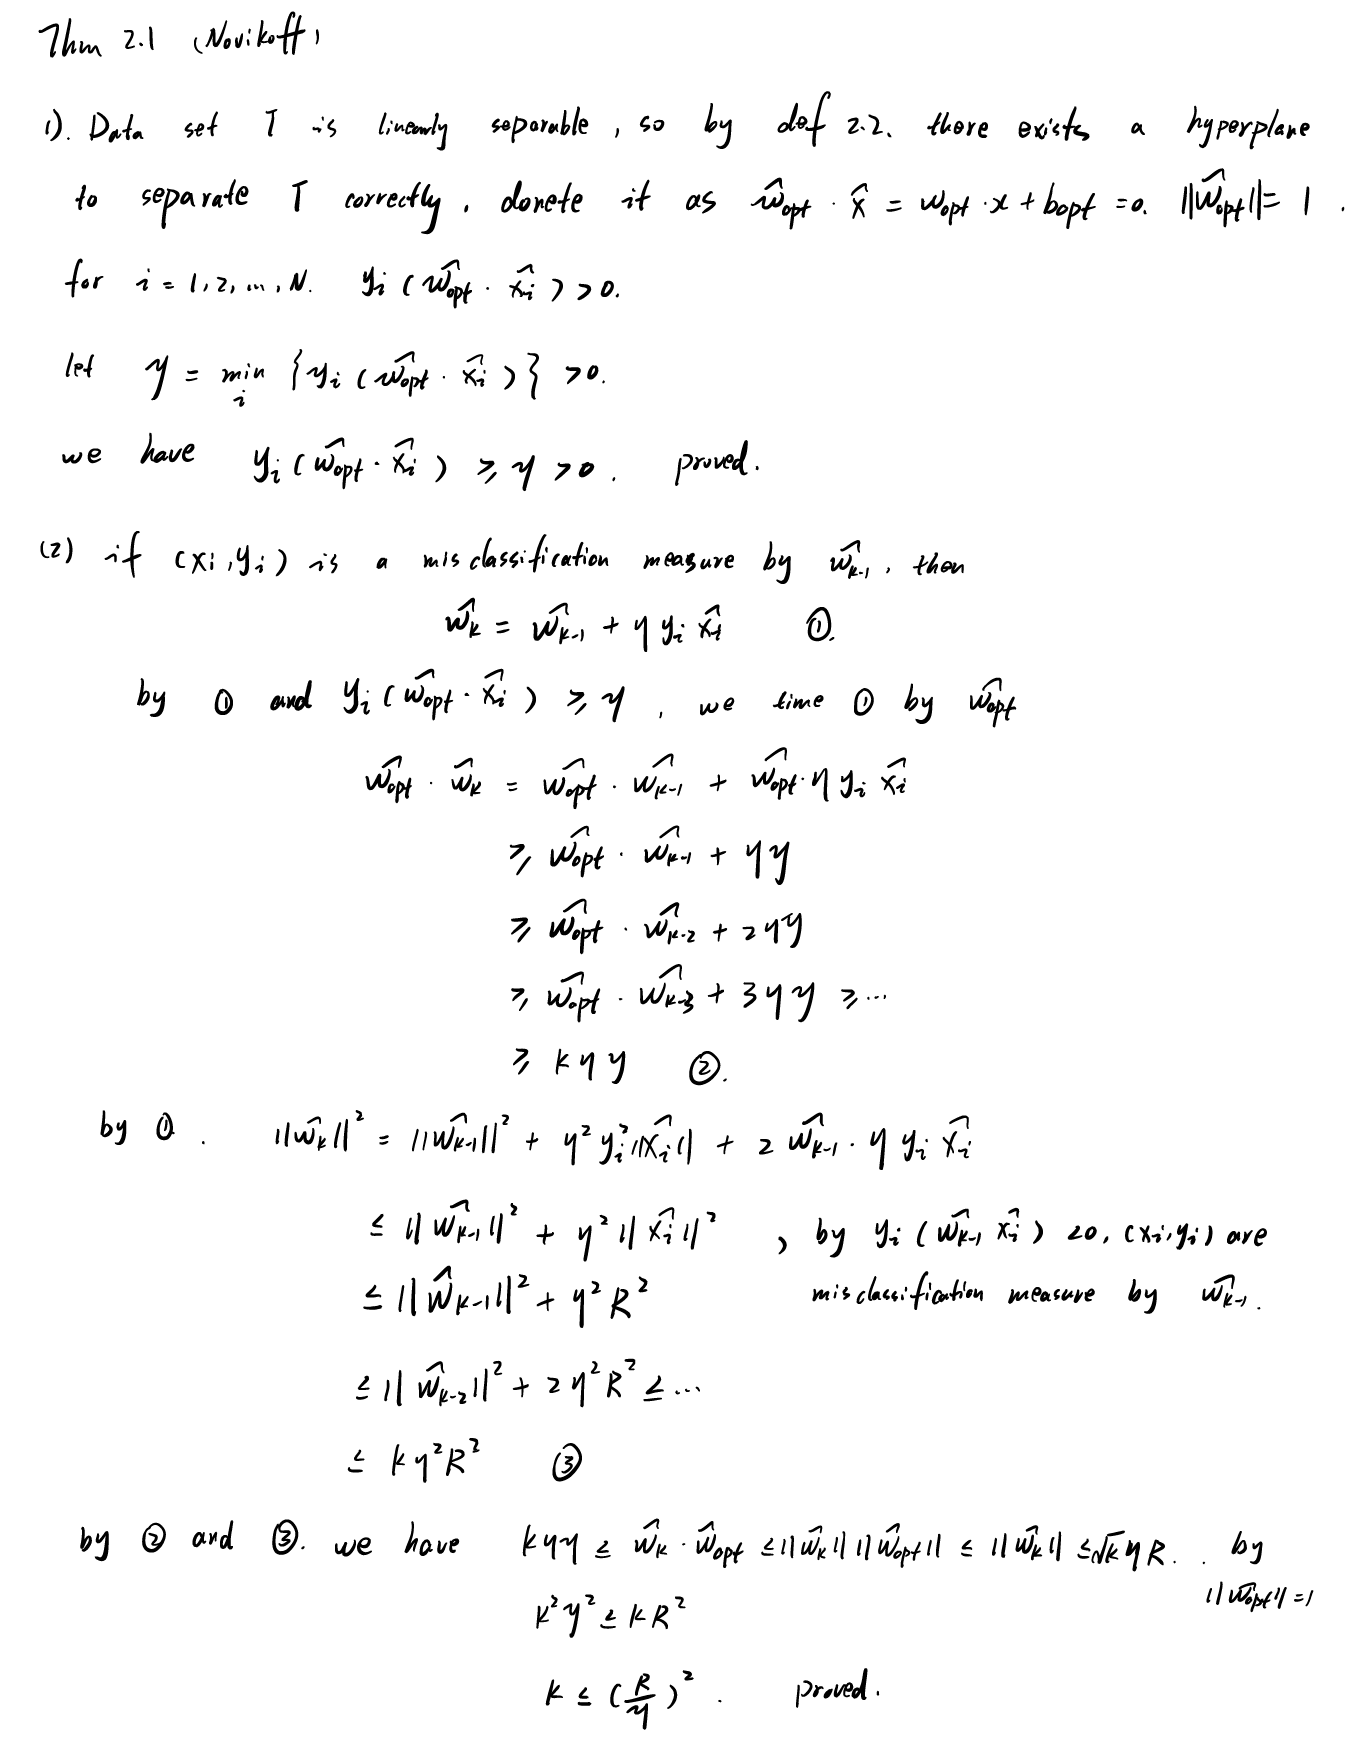 Thm 2.1 (Novikoff)
1). Data set T is linearly separable, so by def 2.2. there exists a hyperplane
to separate T correctly. donete it as ŵopt · x̂ = wopt · x + bopt = 0. ||ŵopt|| = 1.
for i = 1, 2, ..., N. yi (ŵopt · x̂i) > 0.
let γ = min {yi (ŵopt · x̂i)} > 0.
i
we have yi (ŵopt · x̂i) ≥ γ > 0. proved.
(2) if (xi, yi) is a misclassification measure by ŵk-1, then
ŵk = ŵk-1 + η yi x̂i ①.
by ① and yi (ŵopt · x̂i) ≥ γ, we time ① by ŵopt
ŵopt · ŵk = ŵopt · ŵk-1 + ŵopt · η yi x̂i
≥ ŵopt · ŵk-1 + ηγ
≥ ŵopt · ŵk-2 + 2ηγ
≥ ŵopt · ŵk-3 + 3ηγ ≥ ...
≥ kηγ ②.
by ①. ||ŵk||² = ||ŵk-1||² + η² yi² ||x̂i|| + 2 ŵk-1 · η yi x̂i
≤ ||ŵk-1||² + η² ||x̂i||² , by yi (ŵk-1 x̂i) ≤0, (xi, yi) are
≤ ||ŵk-1||² + η² R² misclassification measure by ŵk-1.
≤ ||ŵk-2||² + 2η² R² ≤ ...
≤ kη²R² ③
by ② and ③. we have kηγ ≤ ŵk · ŵopt ≤ ||ŵk|| ||ŵopt|| ≤ ||ŵk|| ≤ √k ηR. . by
||ŵopt|| = 1
k²γ² ≤ kR²
k ≤ (R/γ)². proved.